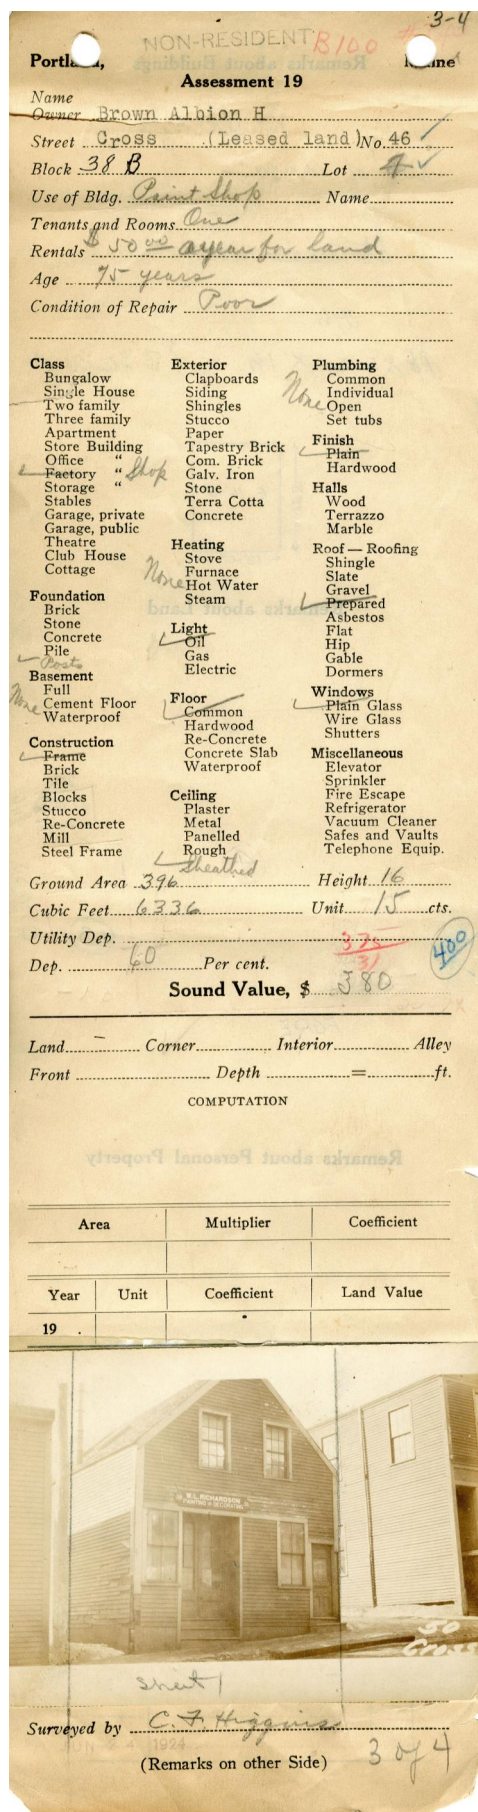 3-4
NON-RESIDENT B100
Portland, Maine
Assessment 19
Name
Owner Brown Albion H
Street Cross (Leased land) No. 46
Block 38 B Lot
Use of Bldg. Paint Shop Name
Tenants and Rooms One
Rentals $50 00 a year for land
Age 75 years
Condition of Repair Poor
Class
Bungalow
Single House
Two family
Three family
Apartment
Store Building
Office "
Factory " Shop
Storage "
Stables
Garage, private
Garage, public
Theatre
Club House
Cottage
Foundation
Brick
Stone
Concrete
Pile
Posts
Basement
Full
None Cement Floor
Waterproof
Construction
Frame
Brick
Tile
Blocks
Stucco
Re-Concrete
Mill
Steel Frame
Exterior
Clapboards
Siding
Shingles
Stucco
Paper
Tapestry Brick
Com. Brick
Galv. Iron
Stone
Terra Cotta
Concrete
Heating
Stove
Furnace
None Hot Water
Steam
Light
Oil
Gas
Electric
Floor
Common
Hardwood
Re-Concrete
Concrete Slab
Waterproof
Ceiling
Plaster
Metal
Panelled
Rough
Sheathed
Plumbing
Common
Individual
None Open
Set tubs
Finish
Plain
Hardwood
Halls
Wood
Terrazzo
Marble
Roof — Roofing
Shingle
Slate
Gravel
Prepared
Asbestos
Flat
Hip
Gable
Dormers
Windows
Plain Glass
Wire Glass
Shutters
Miscellaneous
Elevator
Sprinkler
Fire Escape
Refrigerator
Vacuum Cleaner
Safes and Vaults
Telephone Equip.
Ground Area 396 Height 16
Cubic Feet 6336 Unit 15 cts.
Utility Dep. 375 400
31
Dep. 60 Per cent.
Sound Value, $ 380
Land Corner Interior Alley
Front Depth = ft.
COMPUTATION
Remarks about Personal Property
Area Multiplier Coefficient
Year Unit Coefficient Land Value
19 .
W.L. RICHARDSON
PAINTING & DECORATING
50
Cross
Sheet 1
Surveyed by C. F. Higgins
1924
(Remarks on other Side) 3 of 4